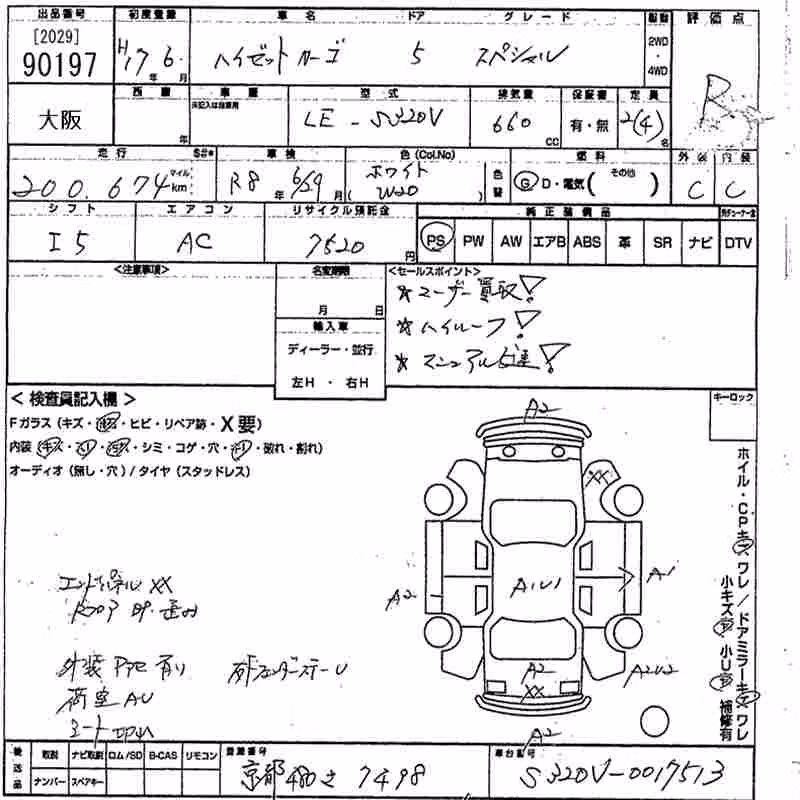 出品番号 初度登録 車名 ドア グレード 駆動 評価点
[2029]
90197
H17年 6月 ハイゼットカーゴ 5 スペシャル 2WD・4WD R
大阪
西暦 年 車歴 未記入は自家用 型式 排気量 保証書 定員
LE-S320V 660cc 有・無 2(4)名
走行 車検 色(Col.No) 色替 燃料 外装 内装
200.674 マイル km R8年 6/29月 ホワイト (W20) G D・電気( その他 ) C C
シフト エアコン リサイクル預託金 純正装備品
I5 AC 7520円 PS PW AW エアB ABS 革 SR ナビ DTV
<注意事項> 名変期限 <セールスポイント>
月 日
輸入車
ディーラー・並行
左H・右H
☆ユーザー買取!
☆ハイルーフ!
☆マニュアル5速!
<検査員記入欄> キーロック
Fガラス(キズ・ ・ヒビ・リペア跡・X要)
内装(キズ・ ・ ・シミ・コゲ・穴・ ・破れ・割れ)
オーディオ(無し・穴)/タイヤ(スタッドレス)
エンドパネルXX
外装 有り
荷室AU
A2
XX
A1
A1U1
A2
A2U2
A2
XX
A2
ホイル・CPキズ ワレ/ドアミラーキズ ワレ
小キズ 小U 補修有
後送品 取説 ナビ取説 ロム/SD B-CAS リモコン
ナンバー スペアキー
登録番号 車台番号
京都 480 さ 7498 S320V-0017513